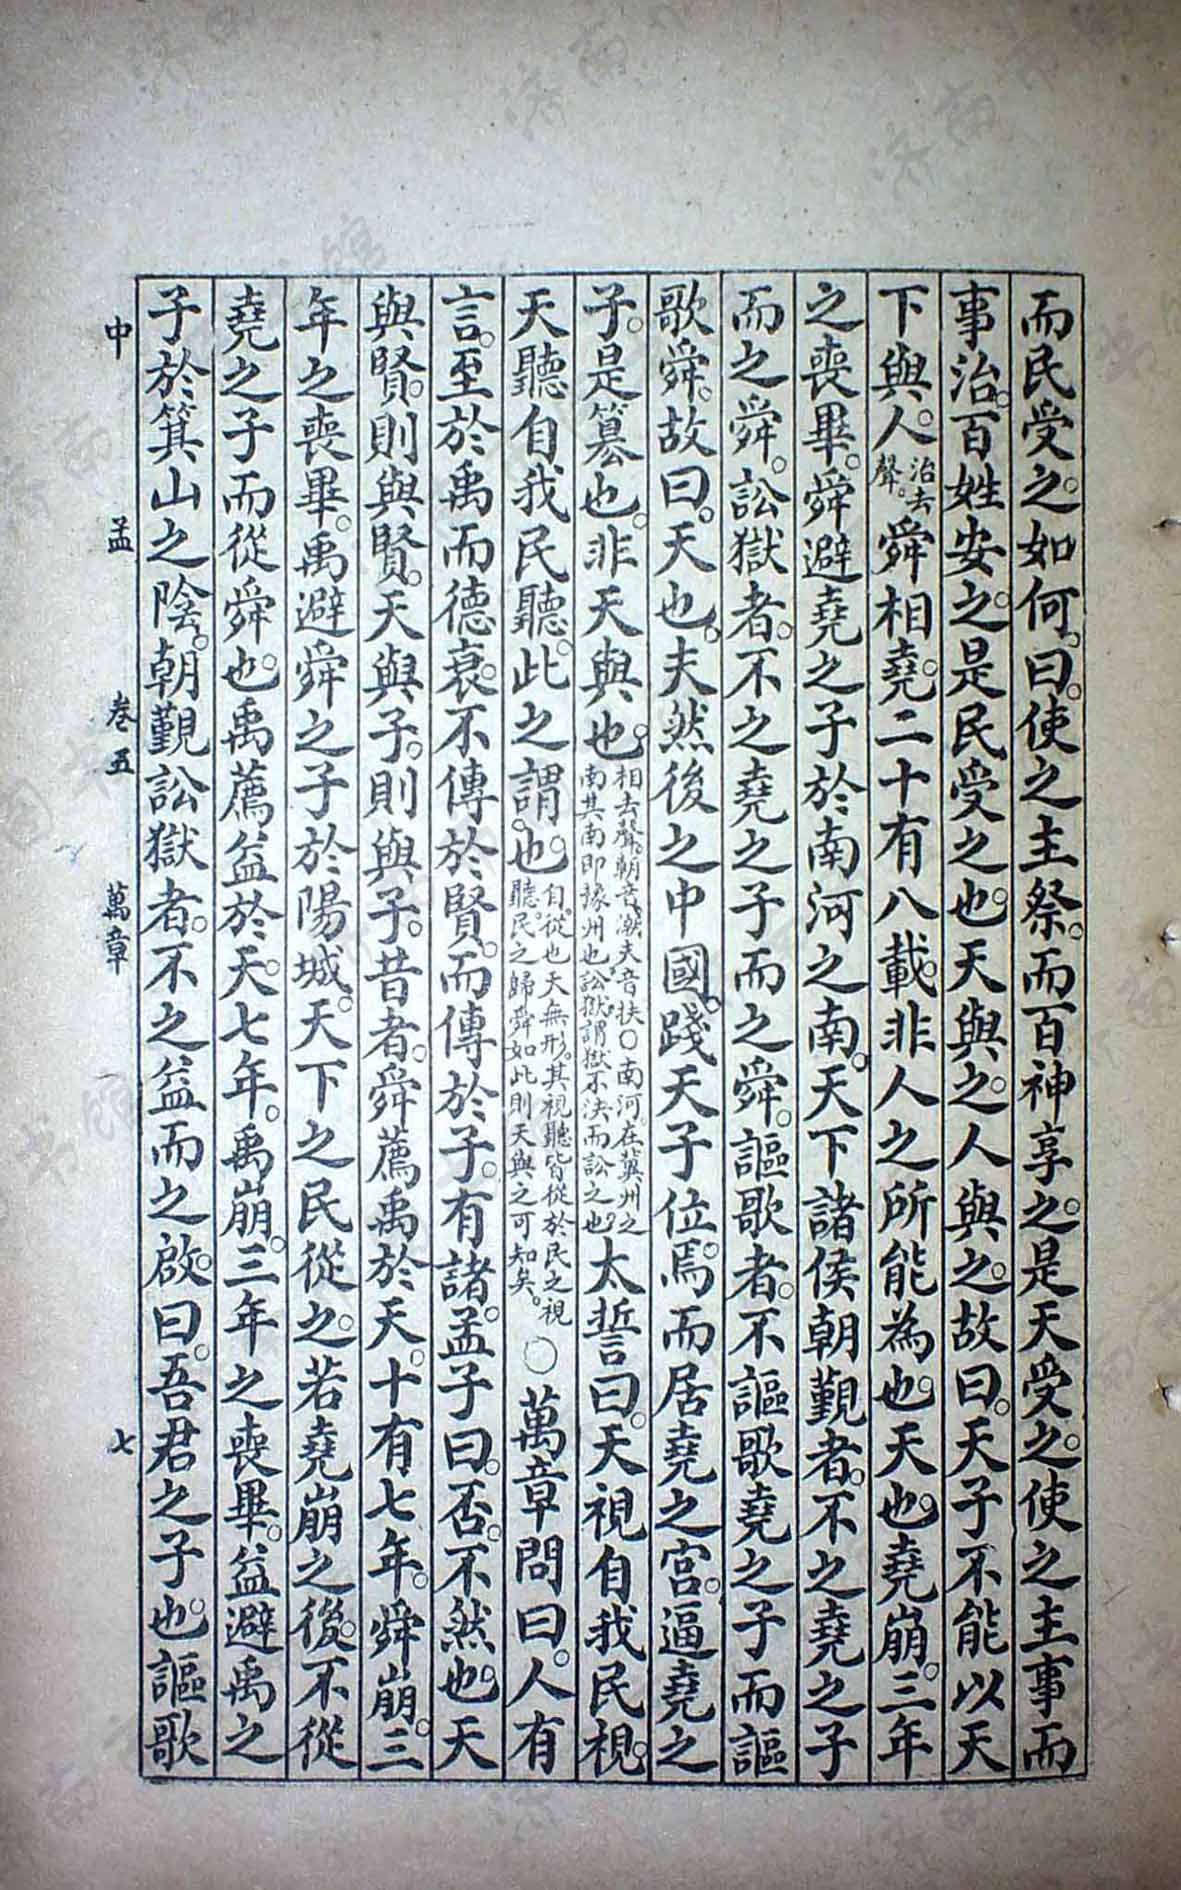 而民受之。如何。曰。使之主祭。而百神享之。是天受之。使之主事而
事治。百姓安之。是民受之也。天與之。人與之。故曰。天子不能以天
下與人。治去聲。舜相堯。二十有八載。非人之所能為也。天也。堯崩。三年
之喪畢。舜避堯之子於南河之南。天下諸侯朝覲者。不之堯之子
而之舜。訟獄者。不之堯之子而之舜。謳歌者。不謳歌堯之子而謳
歌舜。故曰。天也。夫然後之中國。踐天子位焉。而居堯之宮。逼堯之
子。是篡也。非天與也。相去聲。朝音潮。夫音扶○南河。在冀州之南。其南即豫州也。訟獄。謂獄不決而訟之也。太誓曰。天視自我民視。
天聽自我民聽。此之謂也。自。從也。天無形。其視聽皆從於民之視聽。民之歸舜如此。則天與之可知矣。○萬章問曰。人有
言。至於禹而德衰。不傳於賢。而傳於子。有諸。孟子曰。否。不然也。天
與賢。則與賢。天與子。則與子。昔者。舜薦禹於天。十有七年。舜崩。三
年之喪畢。禹避舜之子於陽城。天下之民從之。若堯崩之後。不從
堯之子而從舜也。禹薦益於天。七年。禹崩。三年之喪畢。益避禹之
子於箕山之陰。朝覲訟獄者。不之益而之啟。曰。吾君之子也。謳歌
中 孟 卷五 萬章 七